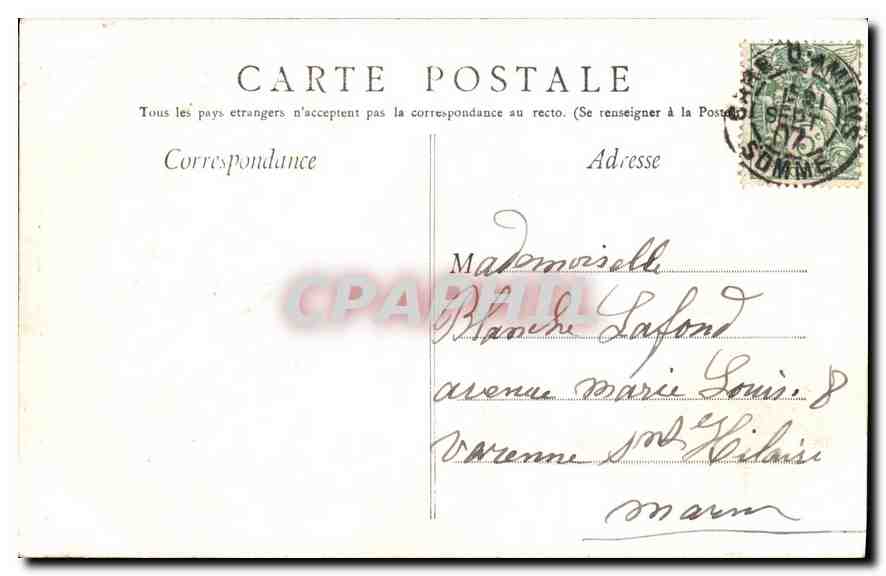 CARTE POSTALE
Tous les pays etrangers n'acceptent pas la correspondance au recto. (Se renseigner à la Poste
Correspondance
Adresse
GARE D'AMIENS
SEPT
07
SOMME
CPAPHIL
Mademoiselle
Blanche Lafond
avenue Marie Louis. 8
Varenne Snt Hilaire
Marne